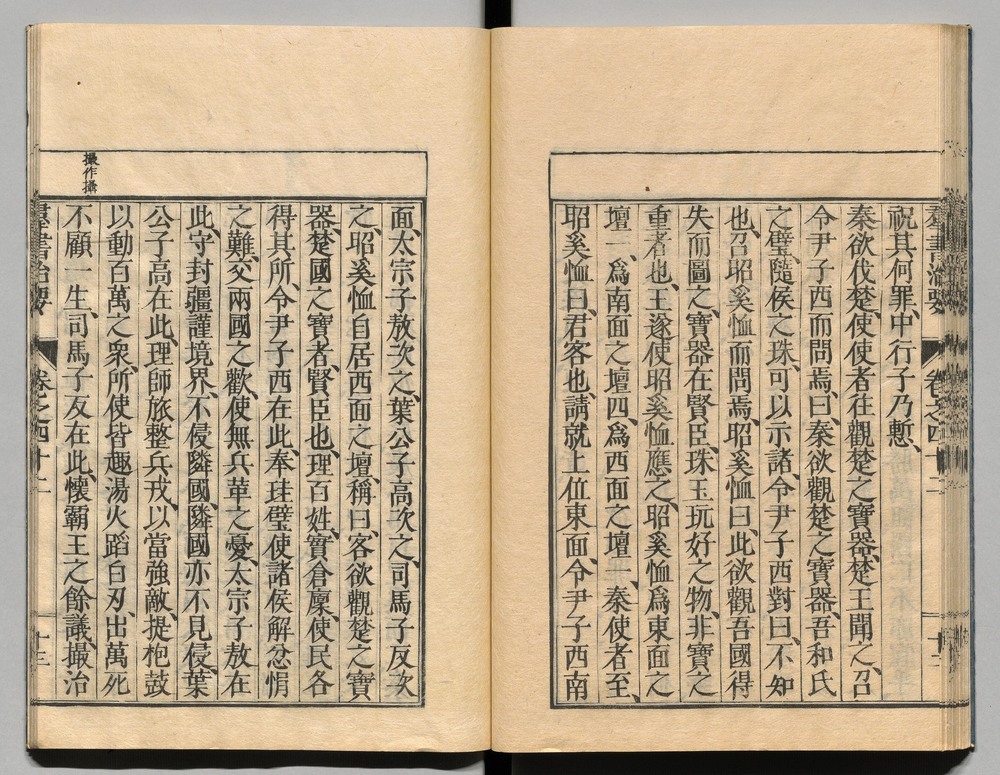 羣書治要 卷之四十二 十三
祝其何罪、中行子乃慙、
秦欲伐楚、使使者往觀楚之寶器、楚王聞之、召
令尹子西而問焉、曰、秦欲觀楚之寶器、吾和氏
之璧、隨侯之珠、可以示諸、令尹子西對曰、不知
也、召昭奚恤而問焉、昭奚恤曰、此欲觀吾國得
失而圖之、寶器在賢臣、珠玉玩好之物、非寶之
重者也、王遂使昭奚恤應之、昭奚恤爲東面之
壇一、爲南面之壇四、爲西面之壇一、秦使者至、
昭奚恤曰、君客也、請就上位東面、令尹子西南
面、太宗子敖次之、葉公子高次之、司馬子反次
之、昭奚恤自居西面之壇、稱曰、客欲觀楚之寶
器、楚國之寶者、賢臣也、理百姓、實倉廩、使民各
得其所、令尹子西在此、奉珪璧、使諸侯、解忿悁
之難、交兩國之歡、使無兵革之憂、太宗子敖在
此、守封疆、謹境界、不侵隣國、隣國亦不見侵、葉
公子高在此、理師旅、整兵戎、以當強敵、提枹鼓
以動百萬之衆、所使皆趣湯火、蹈白刃、出萬死
不顧一生、司馬子反在此、懷霸王之餘議、撮治
撮作攝
羣書治要 卷之四十二 十三